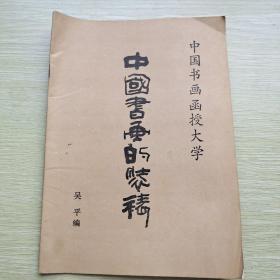 中国书画函授大学
中國書画的装裱
吴平编